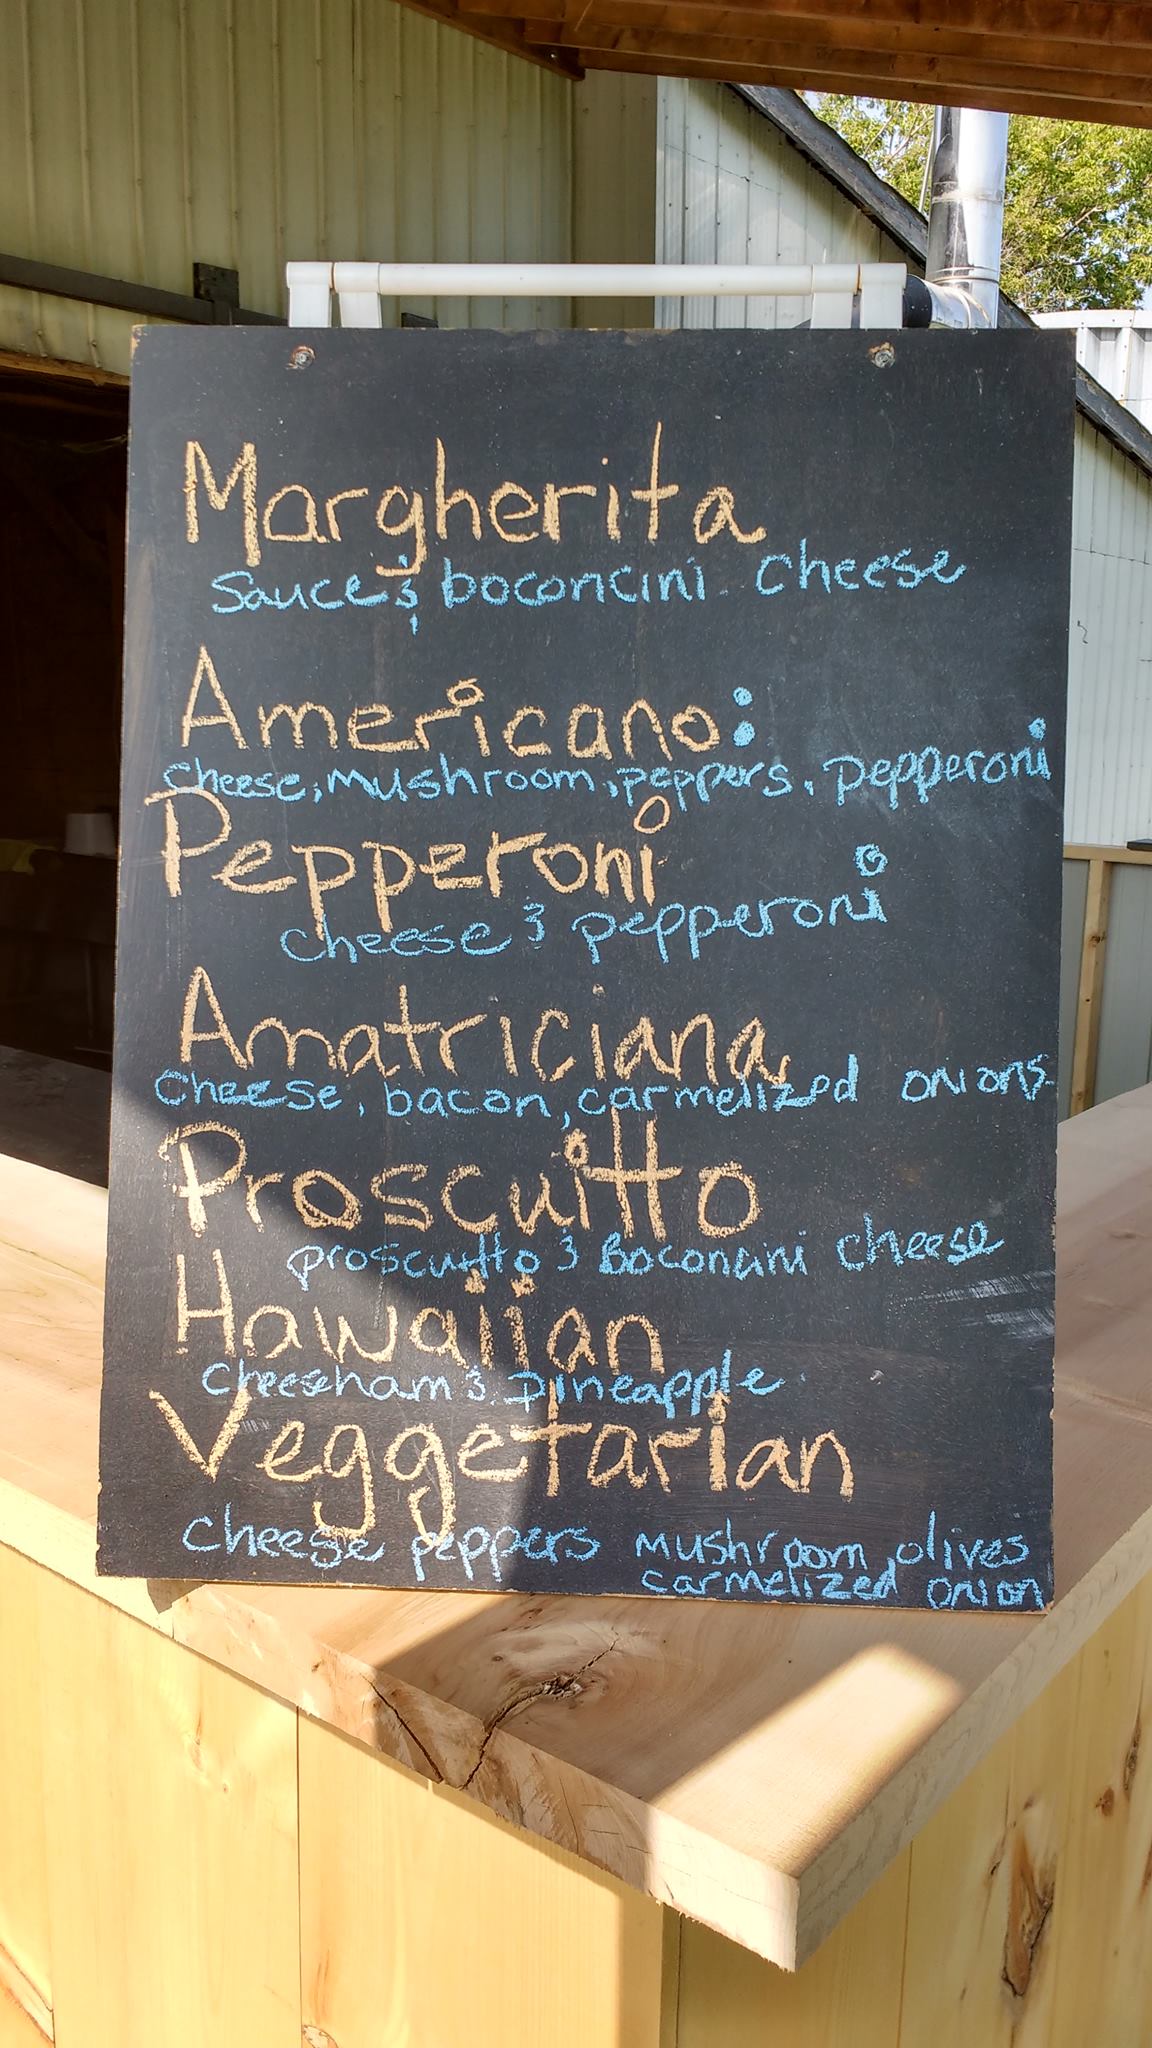 Margherita
Sauce & boconcini cheese
Americano:
cheese, mushroom, peppers, pepperoni
Pepperoni
cheese & pepperoni
Amatriciana
cheese, bacon, carmelized onions
Proscuitto
proscuitto & Boconcini cheese
Hawaiian
cheese ham & pineapple
Veggetarian
cheese peppers mushroom, olives
carmelized onion